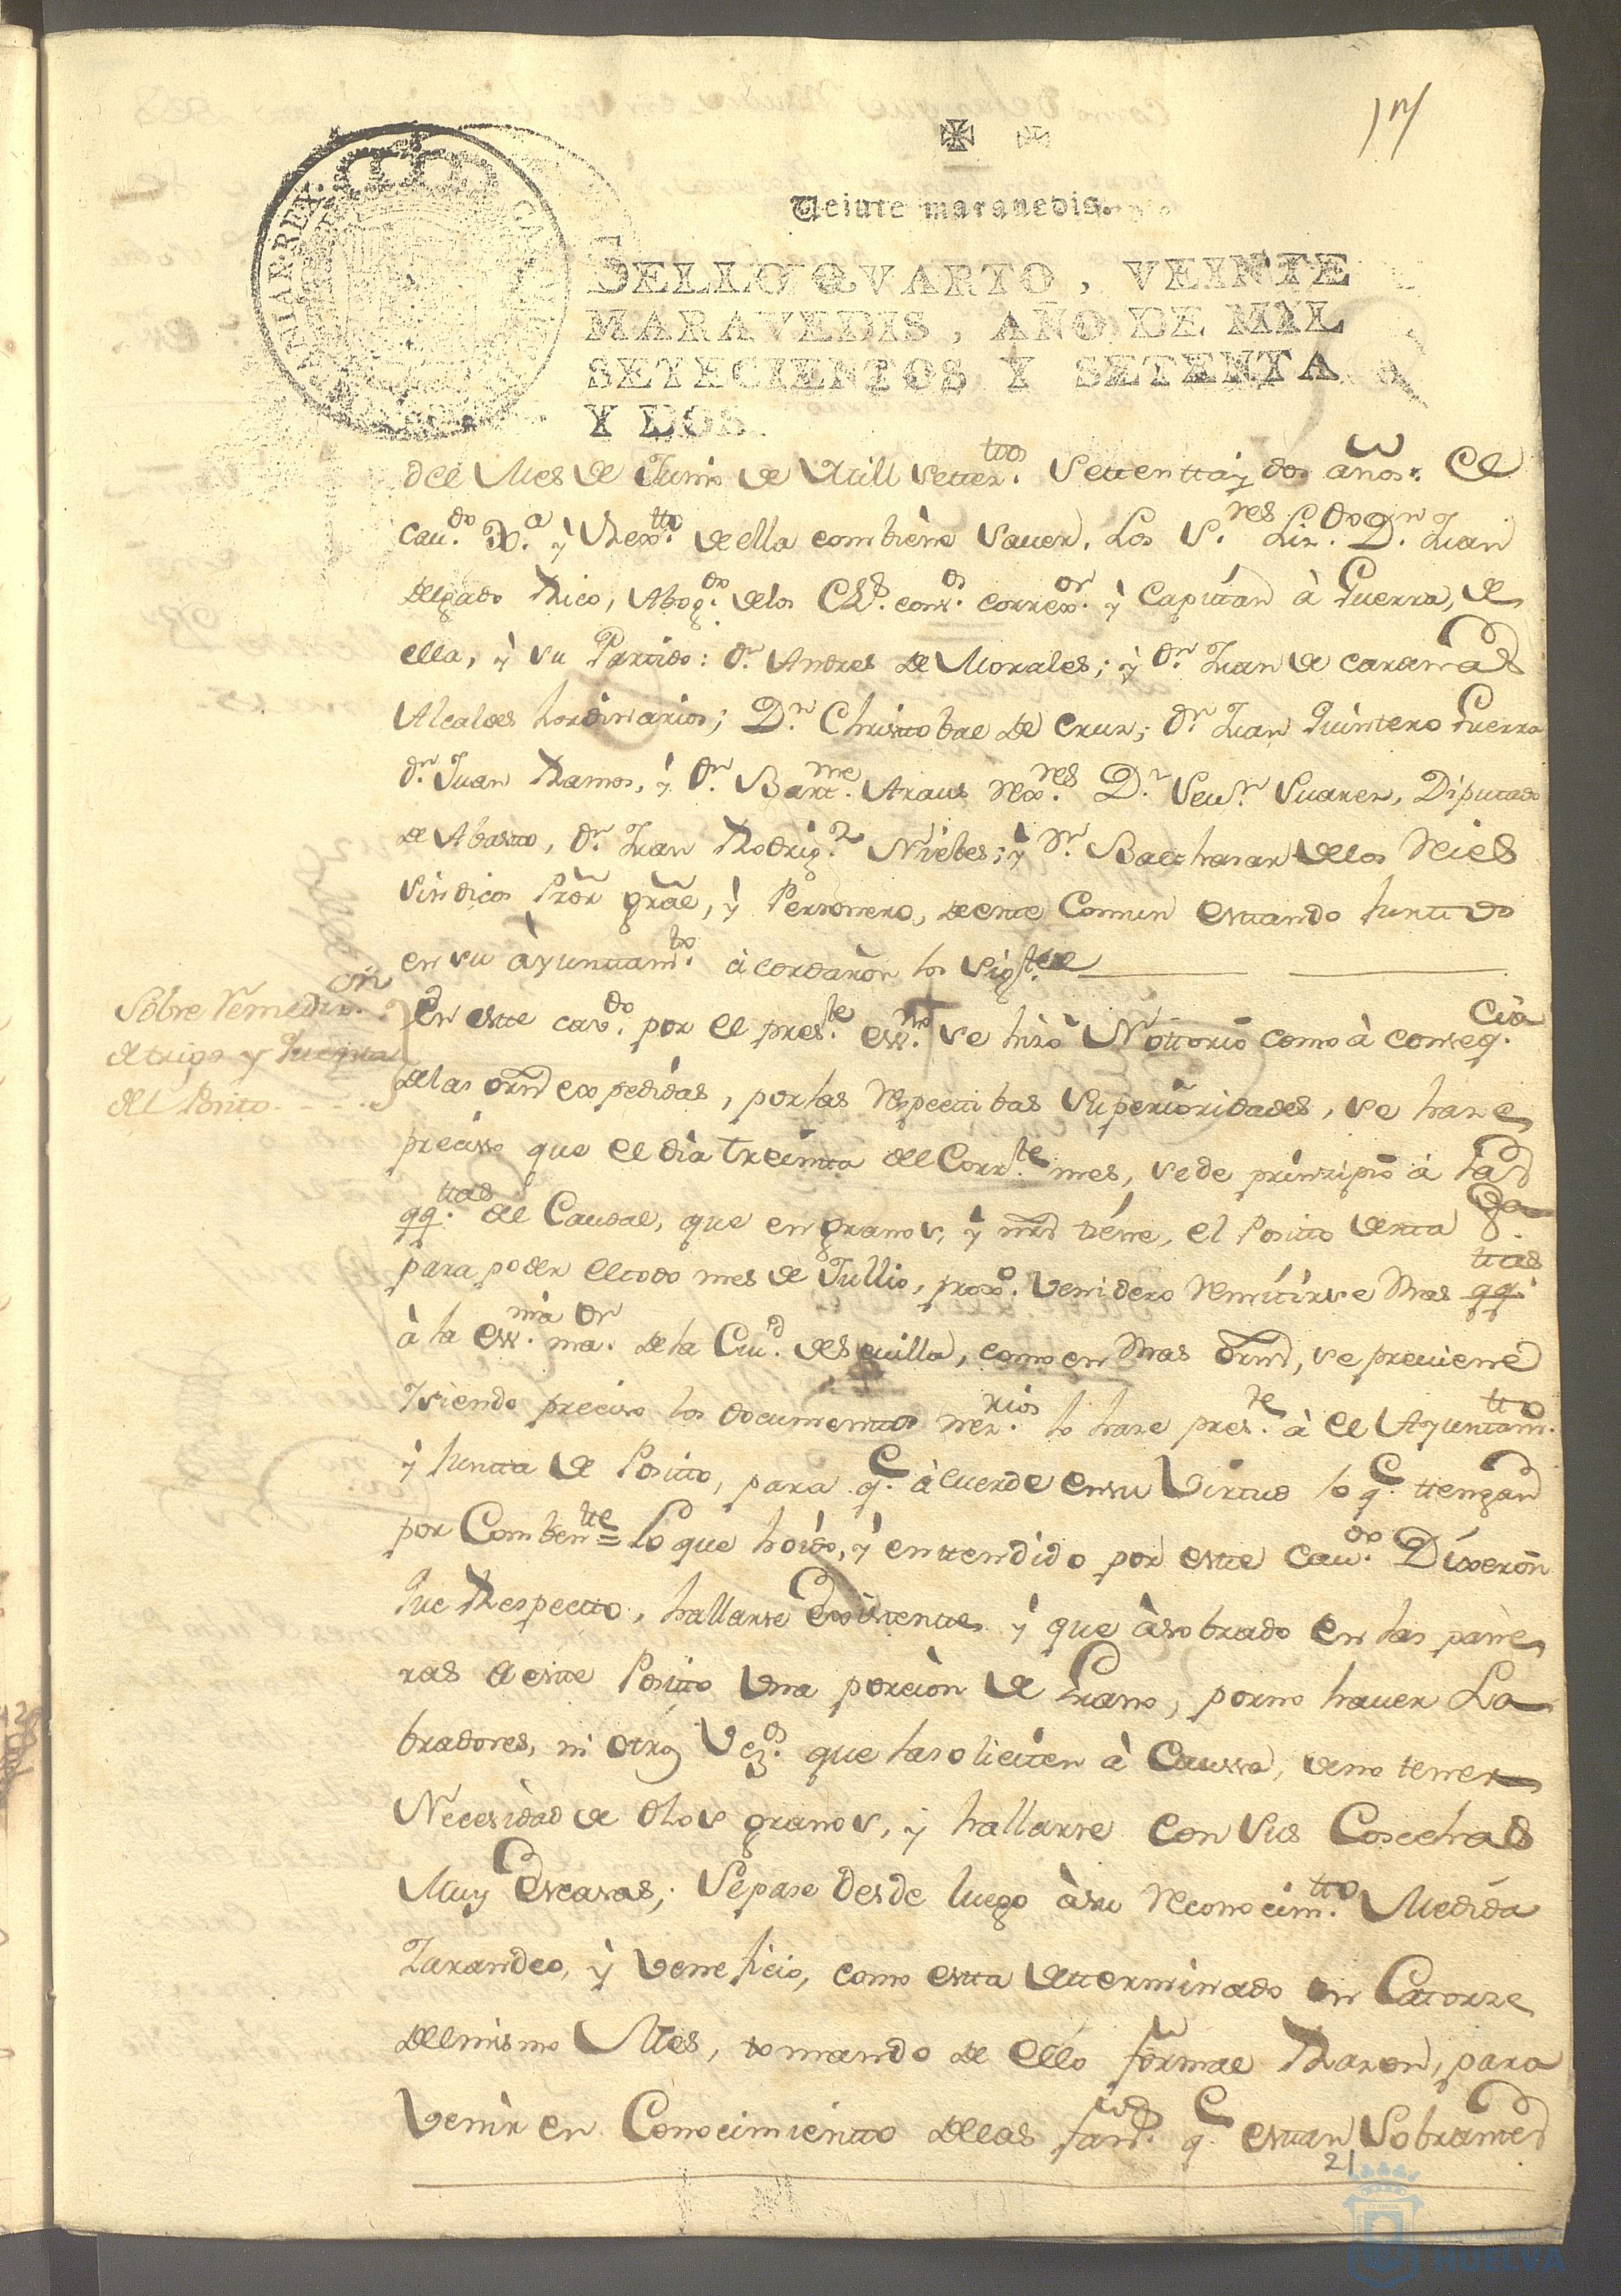 17
Veinte maravedis.
SELLO QVARTO, VEINTE
MARAVEDIS, AÑO DE MIL
SETECIENTOS Y SETENTA
Y DOS
del Mes de Junio de Mill Settez.ttos Settentta y dos años. El
Cau.do Jx.a y Rex.tto de ella combiene Sauer. Los S.res Liz.do D.n Juan
Delgado Rico, Abog.do de los R.s cons.os correx.or y Capitan à Guerra, de
ella, y su Partido: D.n Andres de Morales; y D.n Juan de
Alcaldes hordinarios; D.n Christobal de Cruz; D.n Juan Quintero Guerra
D.n Juan Ramos, y D.n Bart.me Araus Rex.res D.n Seu.n Suarez, Diputado
de Abasto, D.n Juan Rodrig.z Niebes; y D.n Balthasar de los Reies
Sindicos Prór grâl, y Personero, de este Comun estando Junttos
en su àyuntam.to àcordaron lo sig.tte
Sobre Remediz.on
de trigo y Quenta
del Posito
En este cav.do por el pres.te ess.no se hizo Nottorio como à conseq.cia
delas ordñ expedidas, por las respecttibas superioridades, se haze
precisso que el dia treinta del Corr.te mes, se de prinzipio à las
qq.ttas del Caudal, que en granos, y mrd tiene, el Positto de esta
para poder el todo mes de Jullio, prox.o venidero remitirse dhas qq.ttas
à la ess.nia ma.or de la Ciu.d de Sevilla, como en dhas ordñ, se previene
Y siendo preciso los documenttos nez.rios lo haze pres.te à el Ayuntam.tto
y Juntta de Positto, para q.e àcuerde en su Virtud lo q.e ttengan
por Comben.tte = Lo que hoido, y entendido por este Cau.do Dixeron
Que Respectto, hallarse Existente y que à sobrado en las pane
ras de este Positto Una porcion de Grano, por no hauer La
bradores, ni otros Vez.os que las oliciten à Caussa, de no tener
Necesidad de dhos granos, y hallarse con sus Cosechas
Muy Escasas; Se pase desde luego à su reconocim.tto Medida
Zarandeo, y veneficio, como esta detterminado en Catorze
del mismo Mes, tomando de ello formal Razon, para
Venir en Conocimientto de las fan.s q.e estan Sobrantes
21
HUELVA